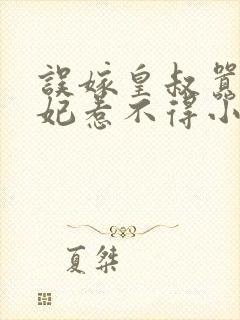 誤嫁皇叔
妃惹不得小
夏桀